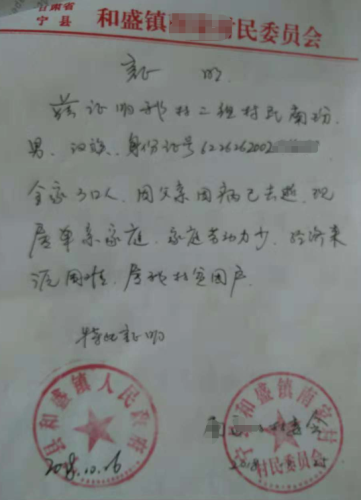 甘肃省
宁县
和盛镇 村民委员会
证明
兹证明我村二组村民南
男、汉族、身份证号622626200
全家3口人,因父亲因病已去逝,现
属单亲家庭,家庭劳动力少,经济来
源困难,属我村贫困户
特此证明
宁县和盛镇人民政府
2018.10.16
宁县和盛镇南
村民委员会
2018